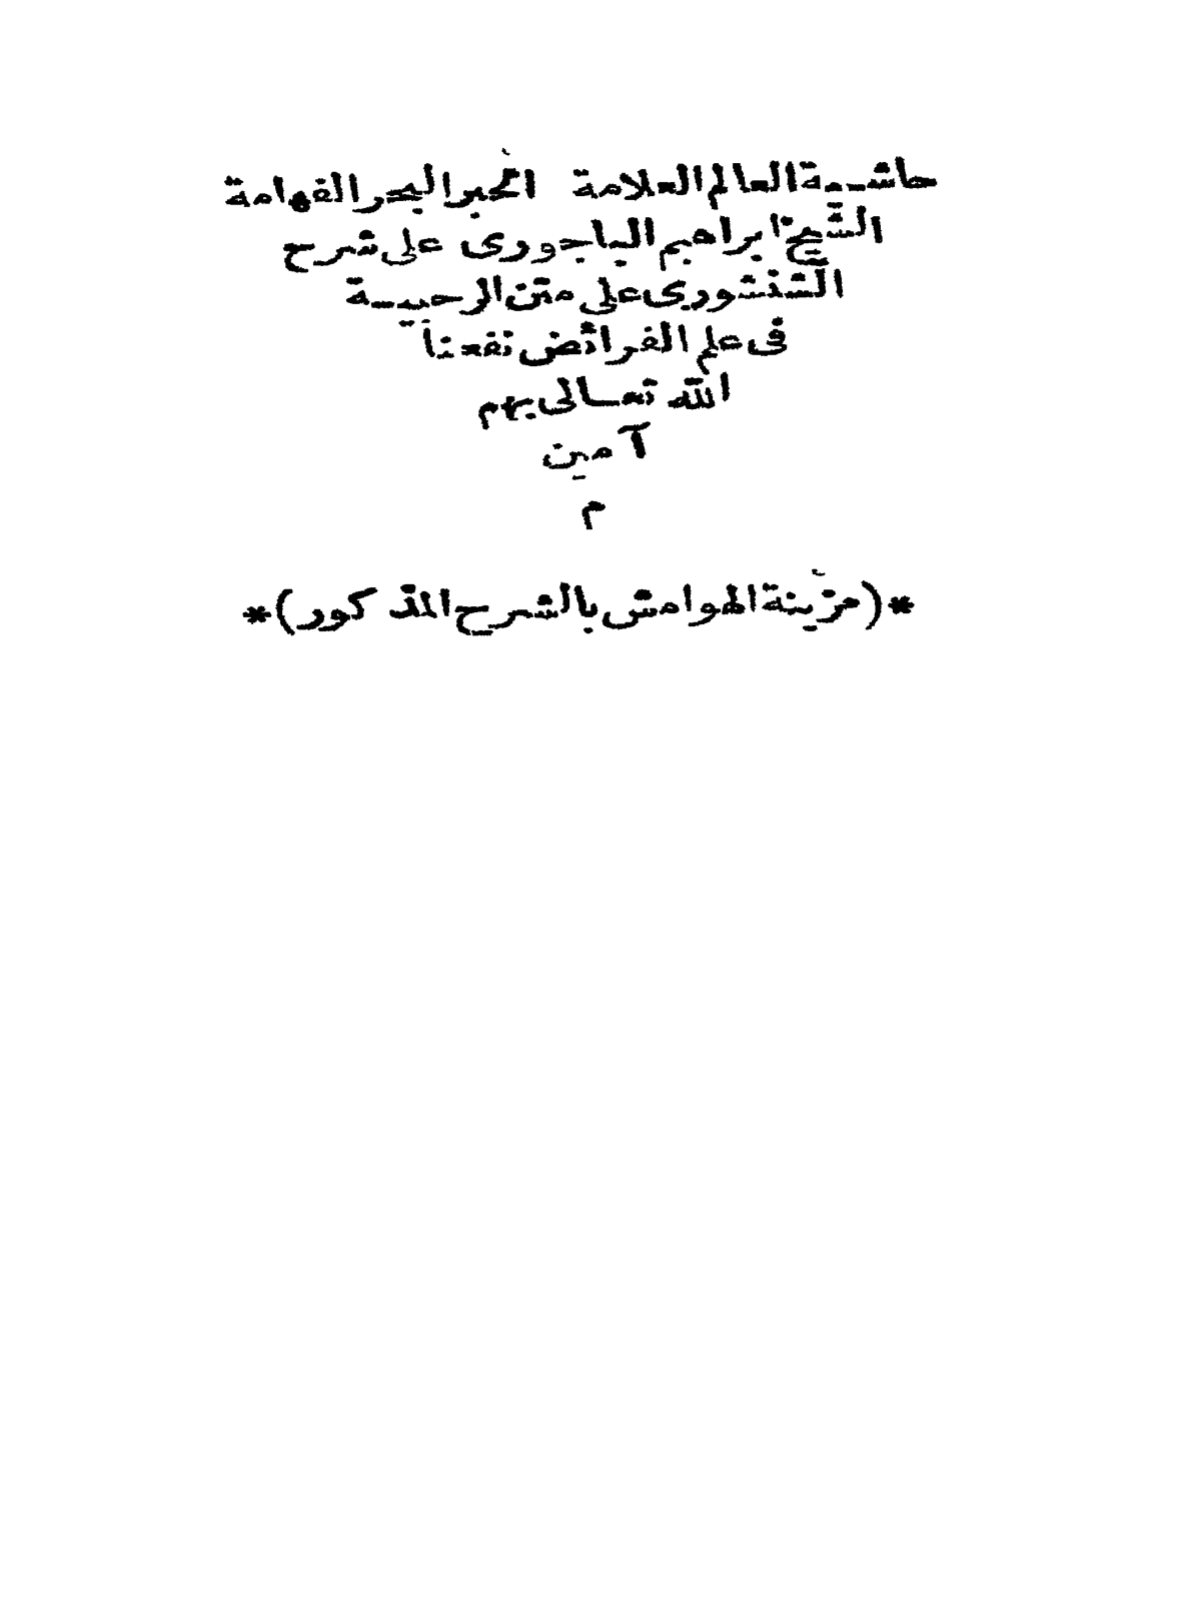 حاشية العالم العلامة الحبر البحر الفهامة
الشيخ ابراهيم الباجورى على شرح
الشنشورى على متن الرحبية
فى علم الفرائض نفعنا
الله تعالى بهم
آمين
م
*(مزينة الهوامش بالشرح المذكور)*